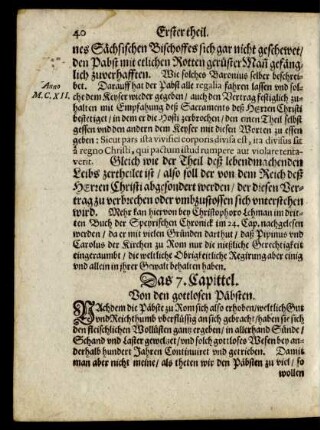 40 Erster theil.
nes Sächsischen Bischoffes sich gar nicht geschewet/
den Pabst mit etlichen Rotten gerüster Mañ gefäng-
lich zuverhafften. Wie solches Baronius selber beschrei-
bet. Darauff hat der Pabst alle regalia fahren lassen vnd sol-
Anno
M.C.XII.
che dem Keyser wieder gegeben / auch den Vertrag festiglich zuhal-
ten mit Empfahung deß Sacraments deß HErren Christi
bestetiget / in dem er die Hosti zerbrochen / den einen Theil selbst
gessen vnd den andern dem Keyser mit diesen Worten zu essen
geben: Sicut pars ista vivifici corporis divisa est, ita divisus sit
à regno Christi, qui pactum istud rumpere aut violare tenta-
verit. Gleich wie der Theil deß lebendmachenden
Leibs zertheilet ist / also soll der von dem Reich deß
HErren Christi abgesondert werden / der diesen Ver-
trag zuverbrechen oder vmbzustossen sich vnterstehen
wird. Mehr kan hiervon bey Christophoro Lehman im drit-
ten Buch der Speyrischen Chronick im 24. Cap. nachgelesen
werden / da er mit vielen Gründen darthut / daß Pipinus vnd
Carolus der Kirchen zu Rom nur die nießliche Gerechtigkeit
eingeraumbt / die weltliche Obrigkeitliche Regirung aber einig
vnd allein in jhrer Gewalt behalten haben.
Das 7. Capittel.
Von den gottlosen Päbsten.
NAchdem die Päbste zu Rom sich also erhoben / weltlich Gut
vnd Reichthumb vberflüssig an sich gebracht / haben sie sich
den fleischlichen Wollüsten gantz ergeben / in allerhand Sünde /
Schand vnd Laster geweltzet / vnd solch gottloses Wesen bey an-
derhalb hundert Jahren Continuiret vnd getrieben. Damit
man aber nicht meine / als theten wir den Päbsten zu viel / so
wollen